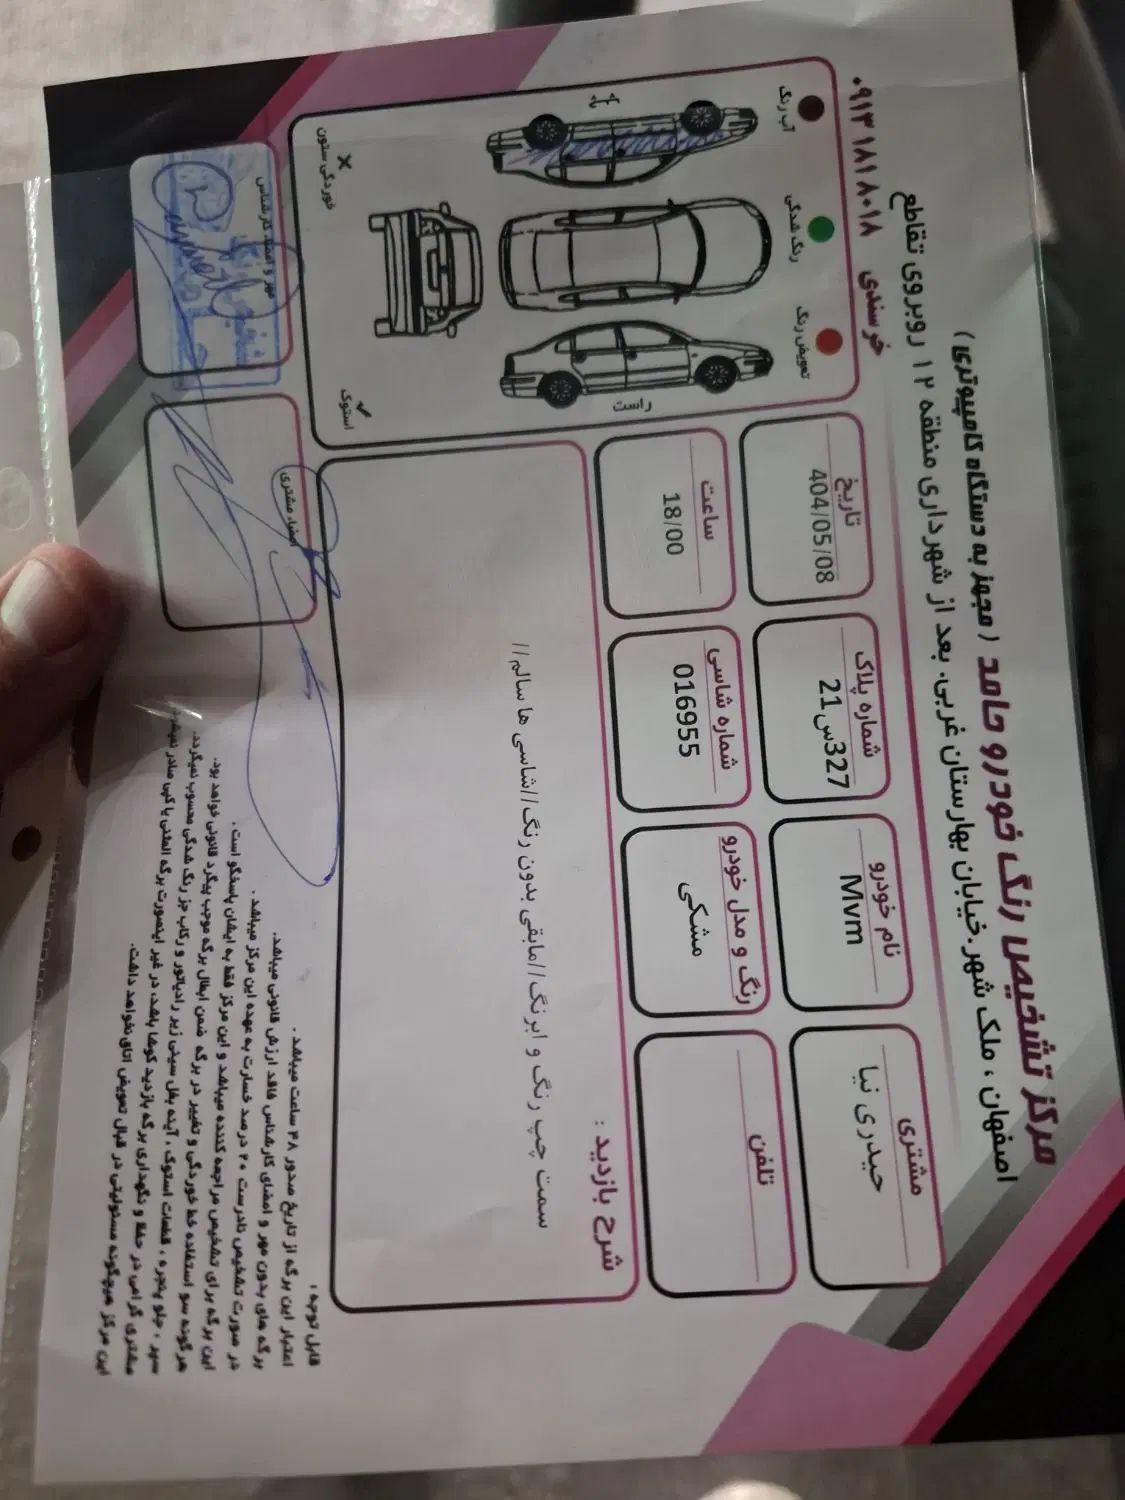 مرکز تشخیص رنگ خودرو حامد ( مجهز به دستگاه کامپیوتری )
اصفهان ، ملک شهر، خیابان بهارستان غربی، بعد از شهرداری منطقه ۱۲ روبروی تقاطع
خرسندی ۰۹۱۳۱۸۱۸۰۱۸
مشتری
حیدری نیا
نام خودرو
Mvm
شماره پلاک
327س21
تاریخ
404/05/08
تلفن
رنگ و مدل خودرو
مشکی
شماره شاسی
016955
ساعت
18/00
تعویض رنگ
رنگ شدگی
آب رنگ
راست
استوک
خوردگی ستون
شرح بازدید :
سمت چپ رنگ و ابرنگ//مابقی بدون رنگ//شاسی ها سالم//
امضاء مشتری
مهر و امضاء کارشناس
قابل توجه :
اعتبار این برگه از تاریخ صدور ۴۸ ساعت میباشد .
برگه های بدون مهر و امضای کارشناس فاقد ارزش قانونی میباشد.
در صورت تشخیص نادرست ۲۰ درصد خسارت به عهده این مرکز میباشد .
این برگه برای تشخیص مراجعه کننده میباشد و این مرکز فقط به ایشان پاسخگو است .
هرگونه سو استفاده خط خوردگی و تغییر در برگه ضمن ابطال برگه موجب پیگرد قانونی خواهد بود.
سپر ، جلو پنجره ، قطعات استوک ، آینه بغل سینی زیر رادیاتور و رکاب جز رنگ شدگی محسوب نمیگردد.
مشتری گرامی در حفظ و نگهداری برگه بازدید کوشا باشد، در غیر اینصورت برگه المثنی یا کپی صادر نمیشود
این مرکز هیچگونه مسئولیتی در قبال تعویض اتاق نخواهد داشت.